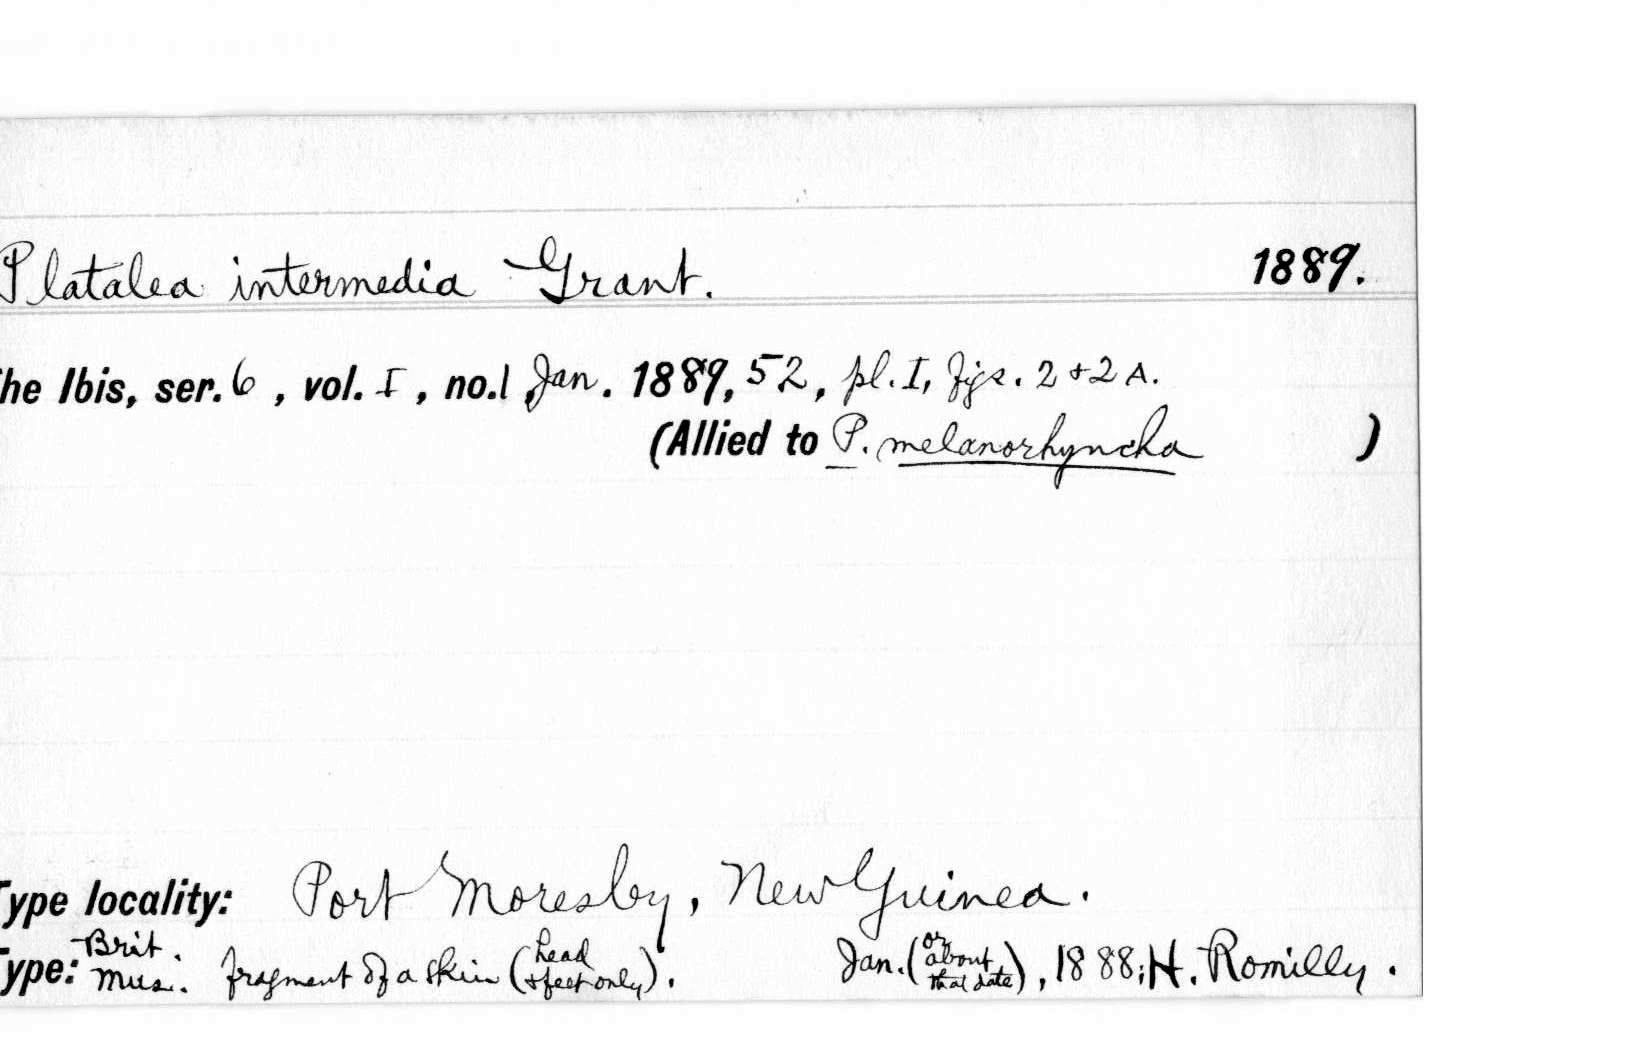 Platalea intermedia Grant. 1889.
he Ibis, ser. 6, vol. I, no.1 Jan. 1889, 52, pl. I, figs. 2 + 2 A.
(Allied to P. melanorhyncha )
Type locality: Port Moresby, New Guinea.
Type: Brit. Mus. fragment of a skin (head + feet only). Jan. (or about that date), 1888; H. Romilly.